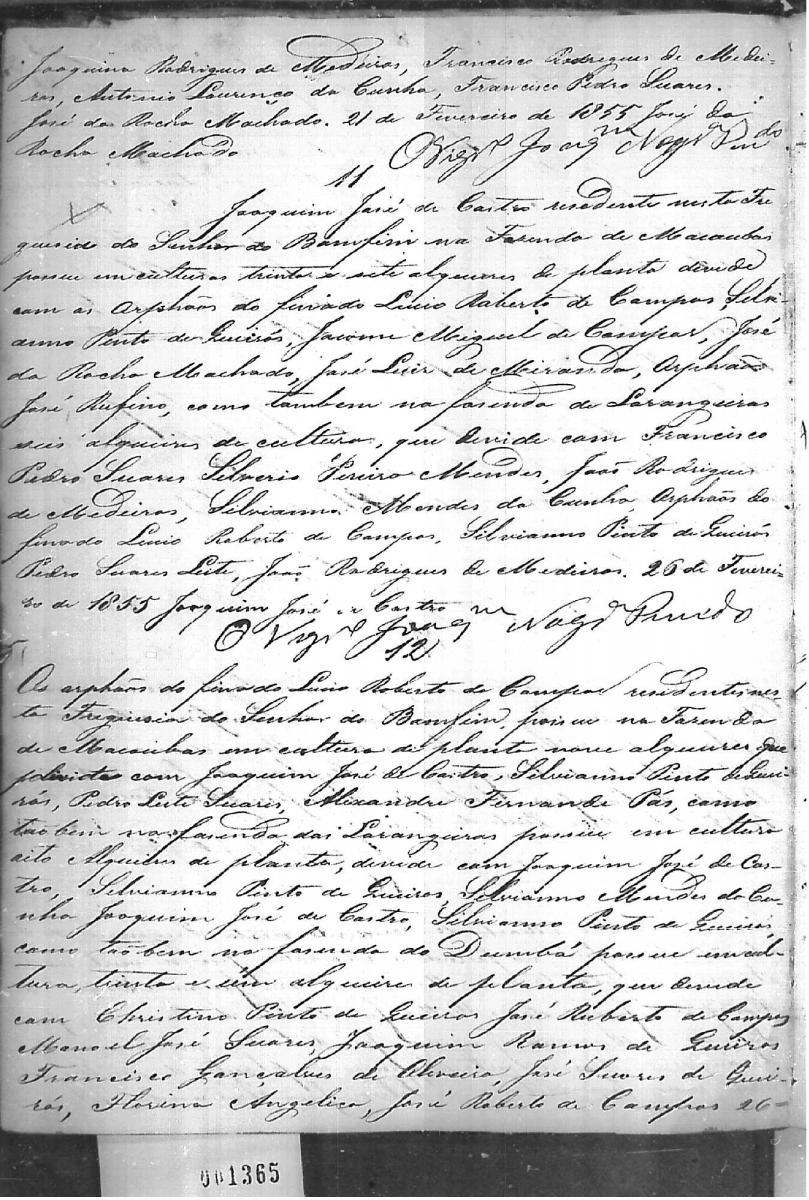 Joaquina Rodrigues de Medeiros, Francisco Rodrigues de Medei-
ros, Antonio Lourenço da Cunha, Francisco Pedro Suares.
José da Rocha Machado. 21 de Fevereiro de 1855 José da
Rocha Machado O Vigrº Joaqm Nogrª Penido
11
Joaquim José de Castro residente nesta Fre
guesia do Senhor do Bomfim na Fazenda de Macaubas
possue em culturas trinta e sete alqueires de planta devide
com os Orphãos do finado Lucio Roberto de Campos, Silvi-
anno Pinto de Queirós, Jacome Miguel de Campos, José
da Rocha Machado, José Luiz de Miranda, Orphãos
José Rufino, como tambem na fasenda de Larangeiras
seis alqueires de cultura, que devide com Francisco
Pedro Suares Silverio Pereira Mendes, João Rodrigues
de Medeiros, Silvianno Mendes da Cunha, Orphãos do
finado Lucio Roberto de Campos, Silvianno Pinto de Queirós
Pedro Suares Leite, João Rodrigues de Medeiros. 26 de Feverei-
ro de 1855 Joaquim José de Castro
O Vigrº Joaqm Nogrª Penido
12
Os orphãos do finado Lucio Roberto de Campos residentes nes-
ta Freguesia do Senhor do Bomfim, possue na Fazenda
de Macaubas em cultura de planta nove alqueires que
devide com Joaquim José de Castro, Silvianno Pinto de Quei-
rós, Pedro Leite Suares, Alixandre Fernande Pás, como
tãobem na fasenda das Larangeiras possue em cultura
oito Alqueires de planta, devide com Joaquim José de Cas-
tro, Silvianno Pinto de Queiros, Silvianno Mendes da Cu-
nha Joaquim José de Castro, Silvianno Pinto de Queiros,
como tãobem na fasenda do Dumbá possue em cul-
tura, trinta e úm alqueire de planta, que devide
com Christino Pinto de Queiros José Ruberto de Campos
Manoel José Suares, Joaquim Ramos de Queiros
Francisco Gonçalves de Oliveira, José Suares de Quei-
rós, Florina Angelica, José Roberto de Campos 26=
001365